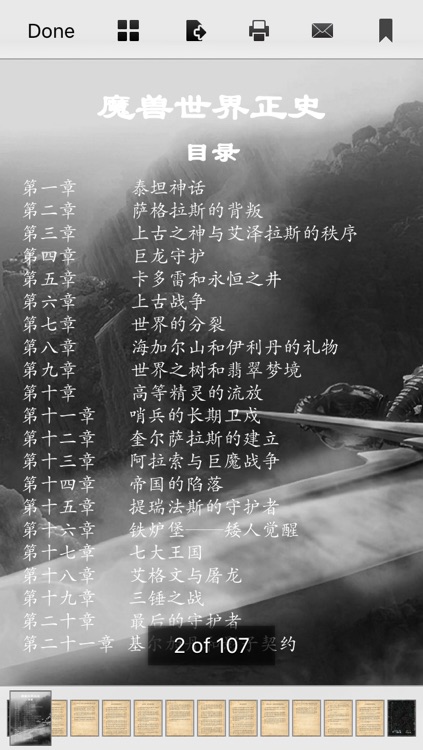 Done
魔兽世界正史
目录
第一章 泰坦神话
第二章 萨格拉斯的背叛
第三章 上古之神与艾泽拉斯的秩序
第四章 巨龙守护
第五章 卡多雷和永恒之井
第六章 上古战争
第七章 世界的分裂
第八章 海加尔山和伊利丹的礼物
第九章 世界之树和翡翠梦境
第十章 高等精灵的流放
第十一章 哨兵的长期卫戍
第十二章 奎尔萨拉斯的建立
第十三章 阿拉索与巨魔战争
第十四章 帝国的陷落
第十五章 提瑞法斯的守护者
第十六章 铁炉堡——矮人觉醒
第十七章 七大王国
第十八章 艾格文与屠龙
第十九章 三锤之战
第二十章 最后的守护者
第二十一章 基尔 契约
2 of 107